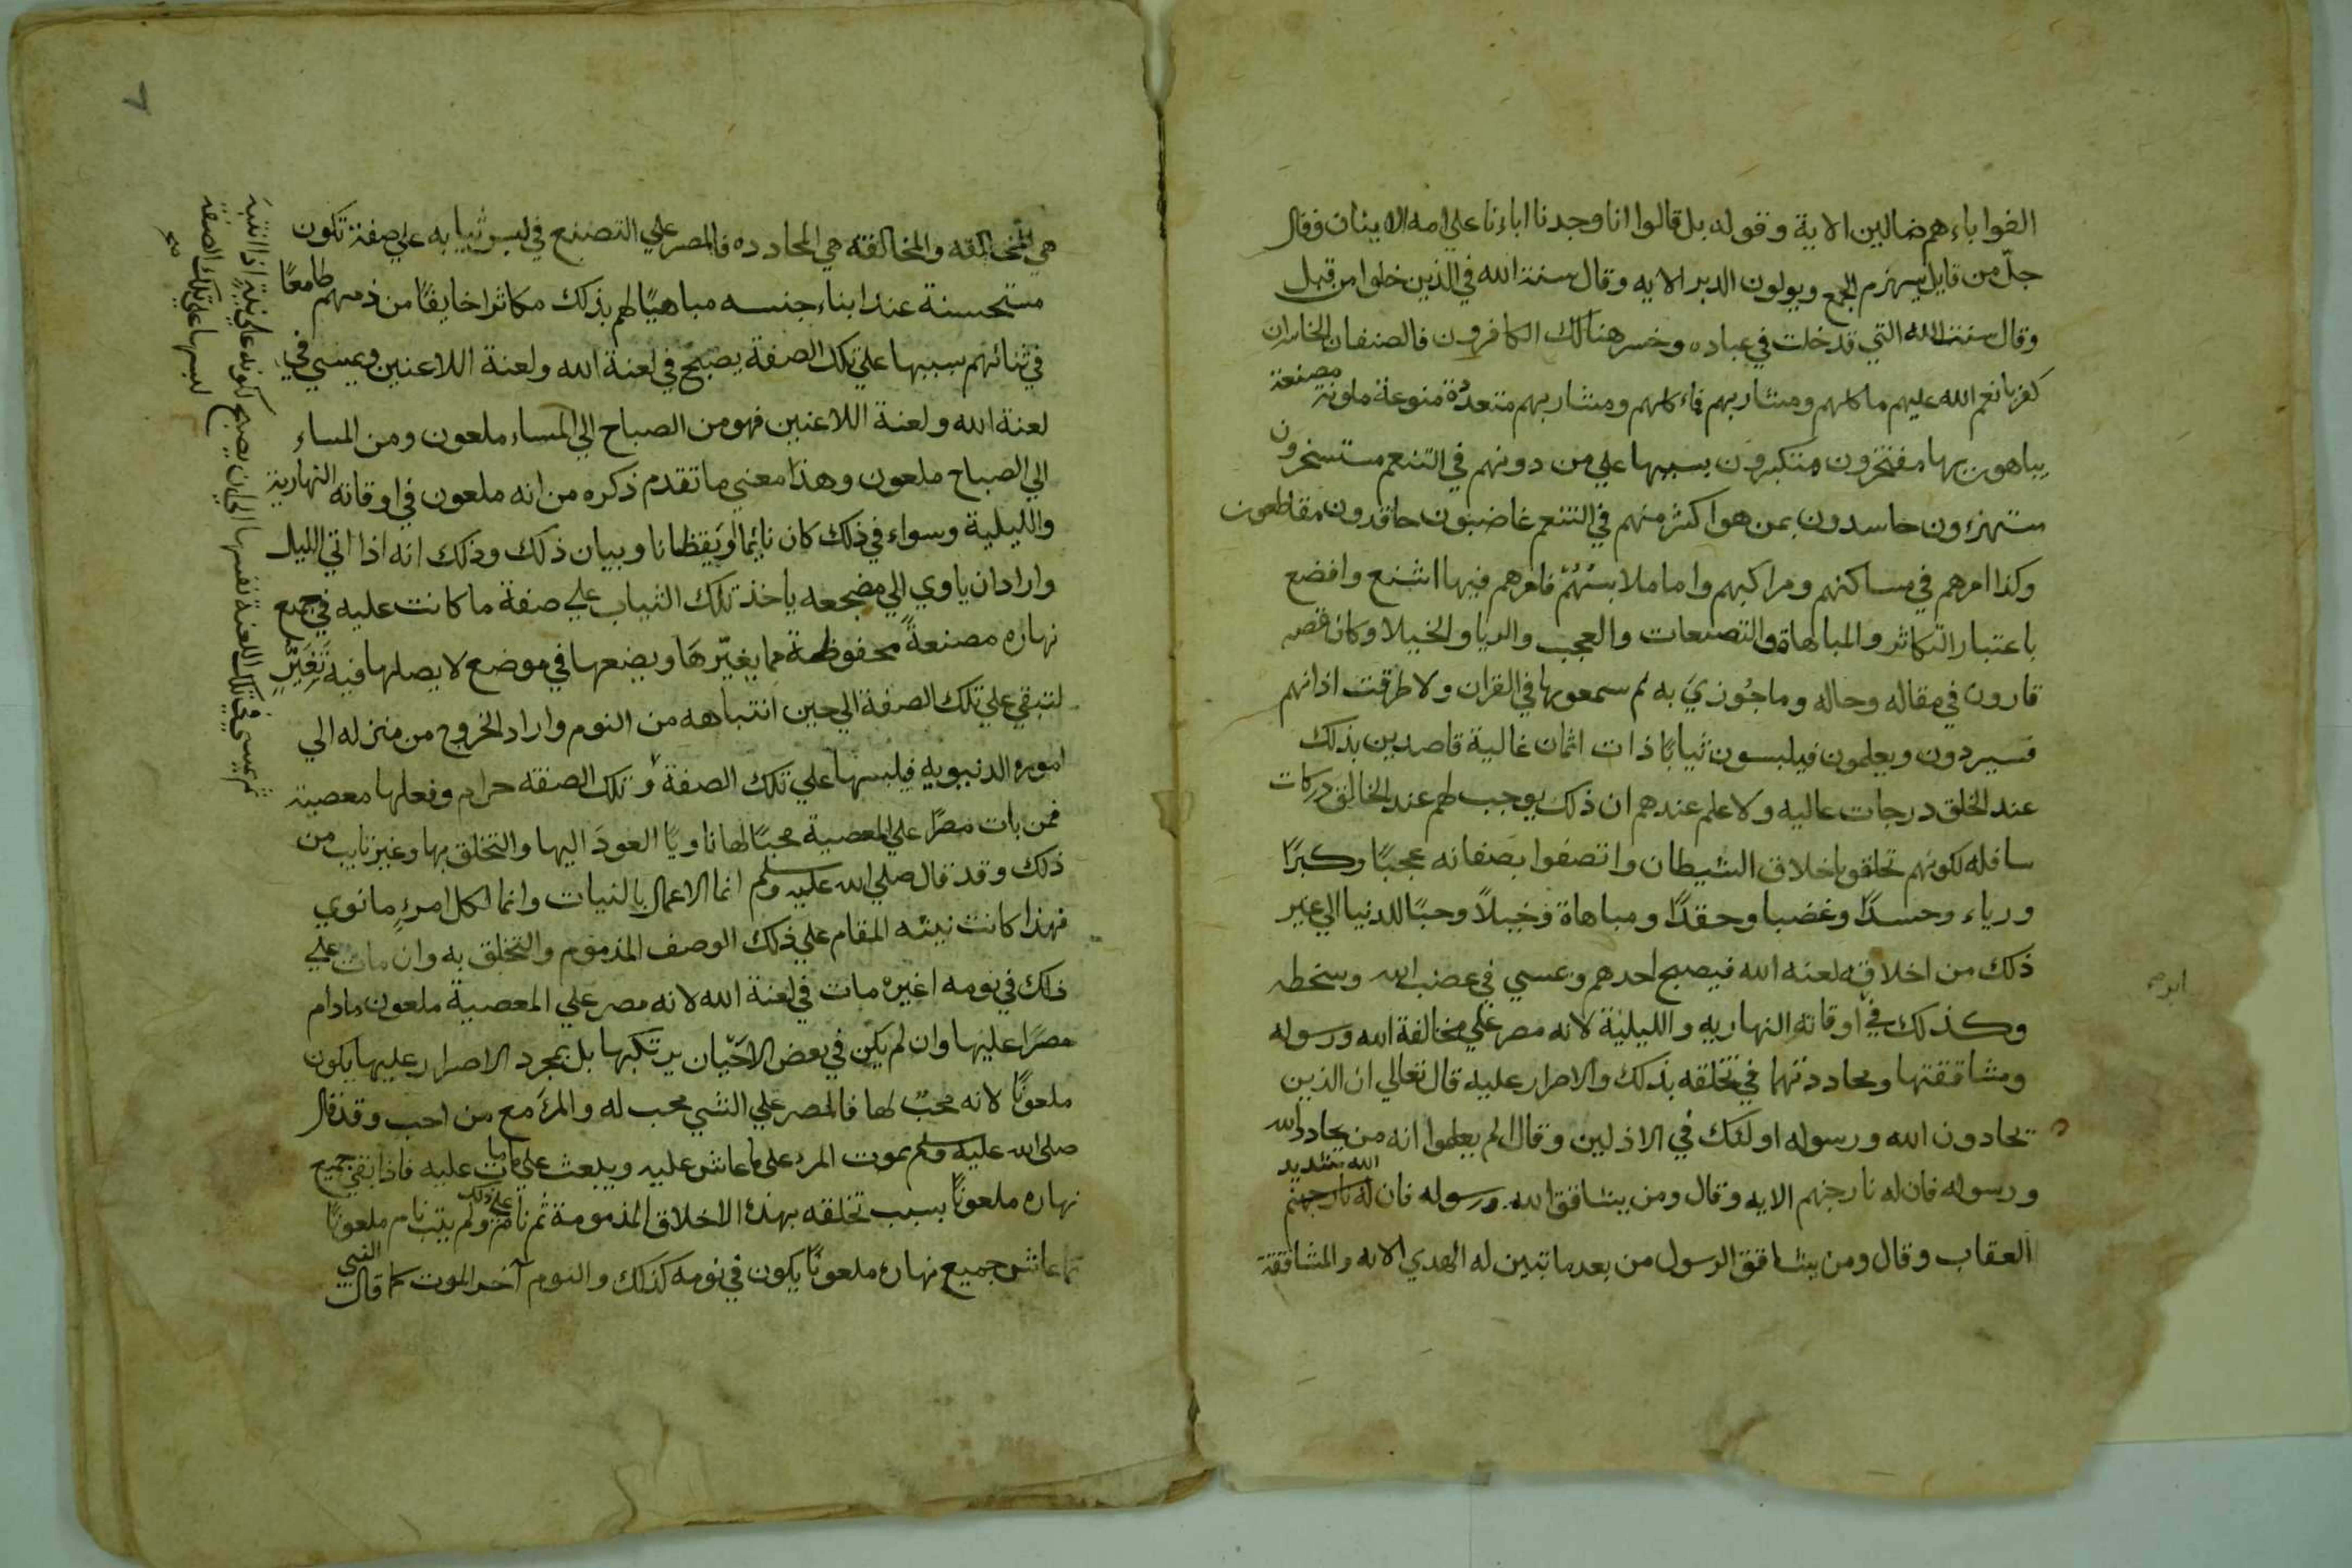 الفوا باءهم ضالين الاية وقوله بل قالوا انا وجدنا اباءنا علي امه الايتان وقال
جلّ من قايل سيهزم الجمع ويولون الدبر الايه وقال سنة الله في الذين خلوا من قبل
وقال سنت الله التي قد خلت في عباده وخسر هنالك الكافرون فالصنفان الخاسران
كفر بانعم الله عليهم ماكلهم ومشاربهم فماكلهم ومشاربهم متعددة منوعة ملونة مصنعة
يباهون بها مفتخرون متكبرون بسببها علي من دونهم في التنعم مستسخرون
مستهزءون حاسدون بمن هو اكثر منهم في التنعم غاضبون حاقدون مقاطعون
وكذا امرهم في مساكنهم ومراكبهم واما ملابسُهُمْ فامرهم فيها اشنع وافضع
باعتبار التكاثر والمباهاة والتصنعات والعجب والريا والخيلا وكان قصه
قارون في مقاله وحاله وما جُوزيَ به لم سمعوها في القران ولا طرقت اذانهم
فسيردون ويعلمون فيلبسون ثيابًا ذات اثمان غالية قاصدين بذلك
عند الخلق درجات عاليه ولا علم عندهم ان ذلك يوجب لهم عند الخالق دركات
سافله لكونهم تخلقوا باخلاق الشيطان واتصفوا بصفاته عجبًا وكبرًا
ورياء وحسدًا وغضبا وحقدًا ومباهاة وخيلاً وحبًا للدنيا الي غير
ذلك من اخلاقه لعنه الله فيصبح احدهم ويمسي في غضب الله وسخطه
وكذلك في اوقاته النهاريه والليلية لانه مصر علي مخالفة الله ورسوله
ومشاققتها ومحاددتهما في تخلقه بذلك والاصرار عليه قال تعالي ان الذين
يحادون الله ورسوله اولئك في الاذلين وقال الم يعلموا انه من يحادد الله
ورسوله فان له نار جهنم الايه وقال ومن يشاقق الله ورسوله فان له نار جهنم الله شديد
العقاب وقال ومن يشاقق الرسول من بعد ما تبين له الهدي الايه والمشاققة
٧
هي المخالفه والمخالفة هي المحادده فالمصر علي التصنع في لبس ثيابه علي صفة تكون
مستحسنة عند ابناء جنسه مباهيًا لهم بذلك مكاثرا خايفًا من ذمهم طامعًا
في ثنائهم بسببها علي تلك الصفة يصبح في لعنة الله ولعنة اللاعنين ويمسي في
لعنة الله ولعنة اللاعنين فهو من الصباح الي المساء ملعون ومن المساء
الي الصباح ملعون وهذا معني ما تقدم ذكره من انه ملعون في اوقاته النهارية
والليلية وسواء في ذلك كان نائمًا او يقظانا وبيان ذلك وذلك انه اذا اتي الليل
واراد ان ياوي الي مضجعه ياخذ تلك الثياب علي صفة ما كانت عليه في جميع
نهاره مصنعةً محفوظة مما يغيّرهَا ويضعها في موضع لا يصلها فيه تَغَيّرٌ
لتبقي علي تلك الصفة الي حين انتباهه من النوم واراد الخروج من منزله الي
اموره الدنيويه فيلبسها علي تلك الصفة و تلك الصفه حرام وفعلها معصية
فمن بات مصرًا علي المعصية محبًا لها ناويًا العودَ اليها والتخلق بها وغير تايب من
ذلك وقد قال صلي الله عليه وسلم انما الاعمال بالنيات وانما لكل امرءٍ ما نوي
فهذا كانت نيته المقام علي ذلك الوصف المذموم والتخلق به وان مات علي
ذلك في نومه اغيره مات في لعنة الله لانه مصر علي المعصية ملعون مادام
مصرًا عليها وان لم يكن في بعض الاحيان يرتكبها بل بمجرد الاصرار عليها يكون
ملعونًا لانه محبّ لها فالمصر علي الشي محب له والمرءَ مع من احب وقد قال
صلي الله عليه وسلم يموت المرء علي ما عاش عليه ويبعث علي ما مات عليه فاذا بقي جميع
نهاره ملعونًا بسبب تخلقه بهذه الاخلاق المذمومة ثم نام علي ذلك ولم يتب نام ملعونًا
كما عاش جميع نهاره ملعونًا يكون في نومه كذلك والنوم آخر الموت كما قال النبي
ثم يمسي في تلك اللعنة نفسها الي ان يصبح لكونه علي نية اذا انتبه
لبسها علي تلك الصفة